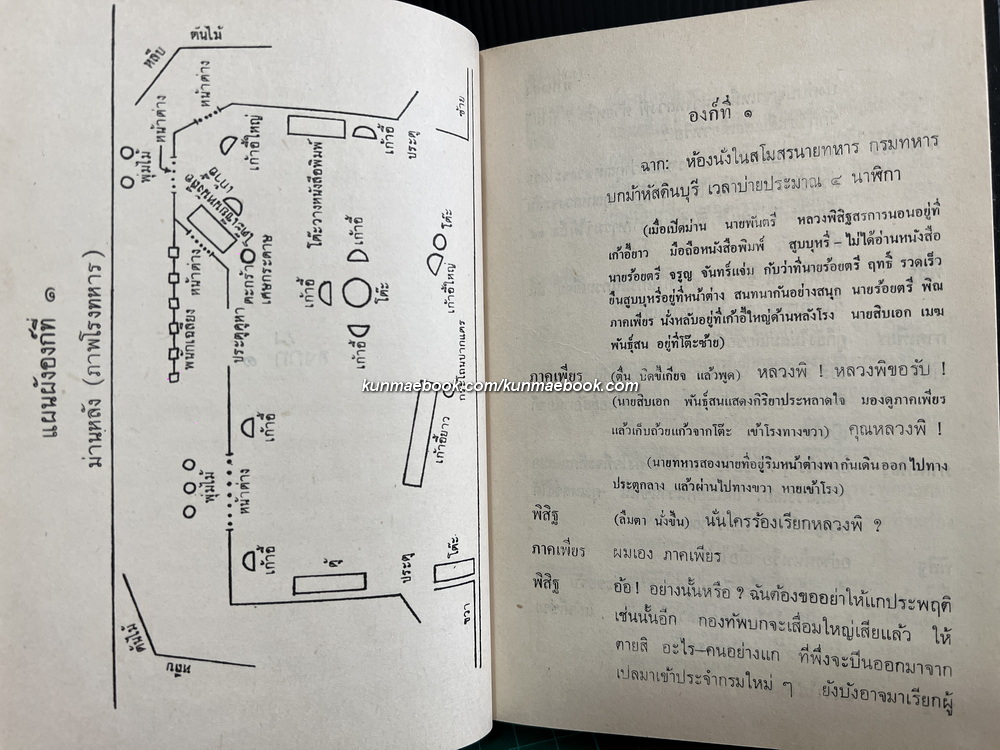 แผนผังองก์ที่ ๑
ม่านหลัง (ภาพโรงทหาร)
ต้นไม้
หลืบ
หน้าต่าง
หน้าต่าง
พุ่มไม้
เก้าอี้ใหญ่
เก้าอี้
โต๊ะเขียนหนังสือ
หน้าต่าง
ตะกร้า
เศษกระดาษ
พนักเฉลียง
ประตูคูหา
โต๊ะวางหนังสือพิมพ์
เก้าอี้
ประตู
ซ้าย
เก้าอี้
เก้าอี้
โต๊ะ
เก้าอี้
โต๊ะ
เก้าอี้ใหญ่
เก้าอี้ยาว
เก้าอี้
พุ่มไม้
หน้าต่าง
เก้าอี้
ตู้
ประตู
โต๊ะ
ขวา
ต้นไม้
หลืบ
องก์ที่ ๑
ฉาก: ห้องนั่งในสโมสรนายทหาร กรมทหาร
บกม้าหัสดินบุรี เวลาบ่ายประมาณ ๔ นาฬิกา
(เมื่อเปิดม่าน นายพันตรี หลวงพิสิฐสรการนอนอยู่ที่
เก้าอี้ยาว มือถือหนังสือพิมพ์ สูบบุหรี่ – ไม่ได้อ่านหนังสือ
นายร้อยตรี จรูญ จันทร์แจ่ม กับว่าที่นายร้อยตรี ฤทธิ์ รวดเร็ว
ยืนสูบบุหรี่อยู่ที่หน้าต่าง สนทนากันอย่างสนุก นายร้อยตรี พิณ
ภาคเพียร นั่งหลับอยู่ที่เก้าอี้ใหญ่ด้านหลังโรง นายสิบเอก เมฆ
พันธุ์สน อยู่ที่โต๊ะซ้าย)
ภาคเพียร (ตื่น บิดขี้เกียจ แล้วพูด) หลวงพิ ! หลวงพิขอรับ !
(นายสิบเอก พันธุ์สนแสดงกิริยาประหลาดใจ มองดูภาคเพียร
แล้วเก็บถ้วยแก้วจากโต๊ะ เข้าโรงทางขวา) คุณหลวงพิ !
(นายทหารสองนายที่อยู่ริมหน้าต่างพากันเดินออกไปทาง
ประตูกลาง แล้วผ่านไปทางขวา หายเข้าโรง)
พิสิฐ (ลืมตา นั่งขึ้น) นั่นใครร้องเรียกหลวงพิ ?
ภาคเพียร ผมเอง ภาคเพียร
พิสิฐ อ้อ ! อย่างนั้นหรือ ? ฉันต้องขออย่าให้แกประพฤติ
เช่นนั้นอีก กองทัพบกจะเสื่อมใหญ่เสียแล้ว ให้
ตายสิ อะไร—คนอย่างแก ที่พึ่งจะปีนออกมาจาก
เปลมาเข้าประจำกรมใหม่ ๆ ยังบังอาจมาเรียกผู้
kunmaebook.com/kunmaebook.com